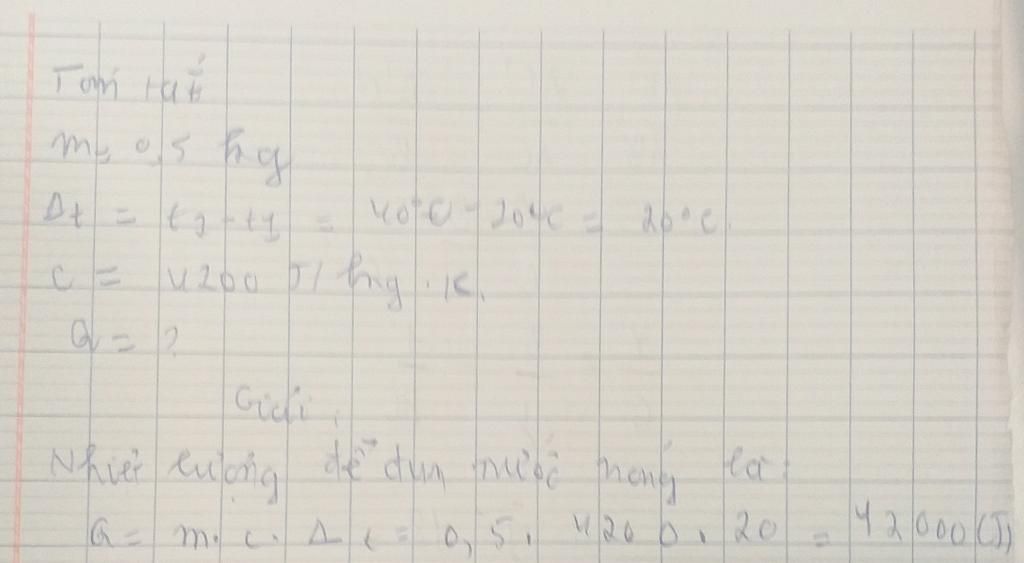 Tóm tắt
m = 0,5 kg
Δt = t2 - t1 = 40°C - 20°C = 20°C.
c = 4200 J/kg.K.
Q = ?
Giải,
Nhiệt lượng để đun nước nóng là:
Q = m.c.Δt = 0,5. 4200. 20 = 42000(J)